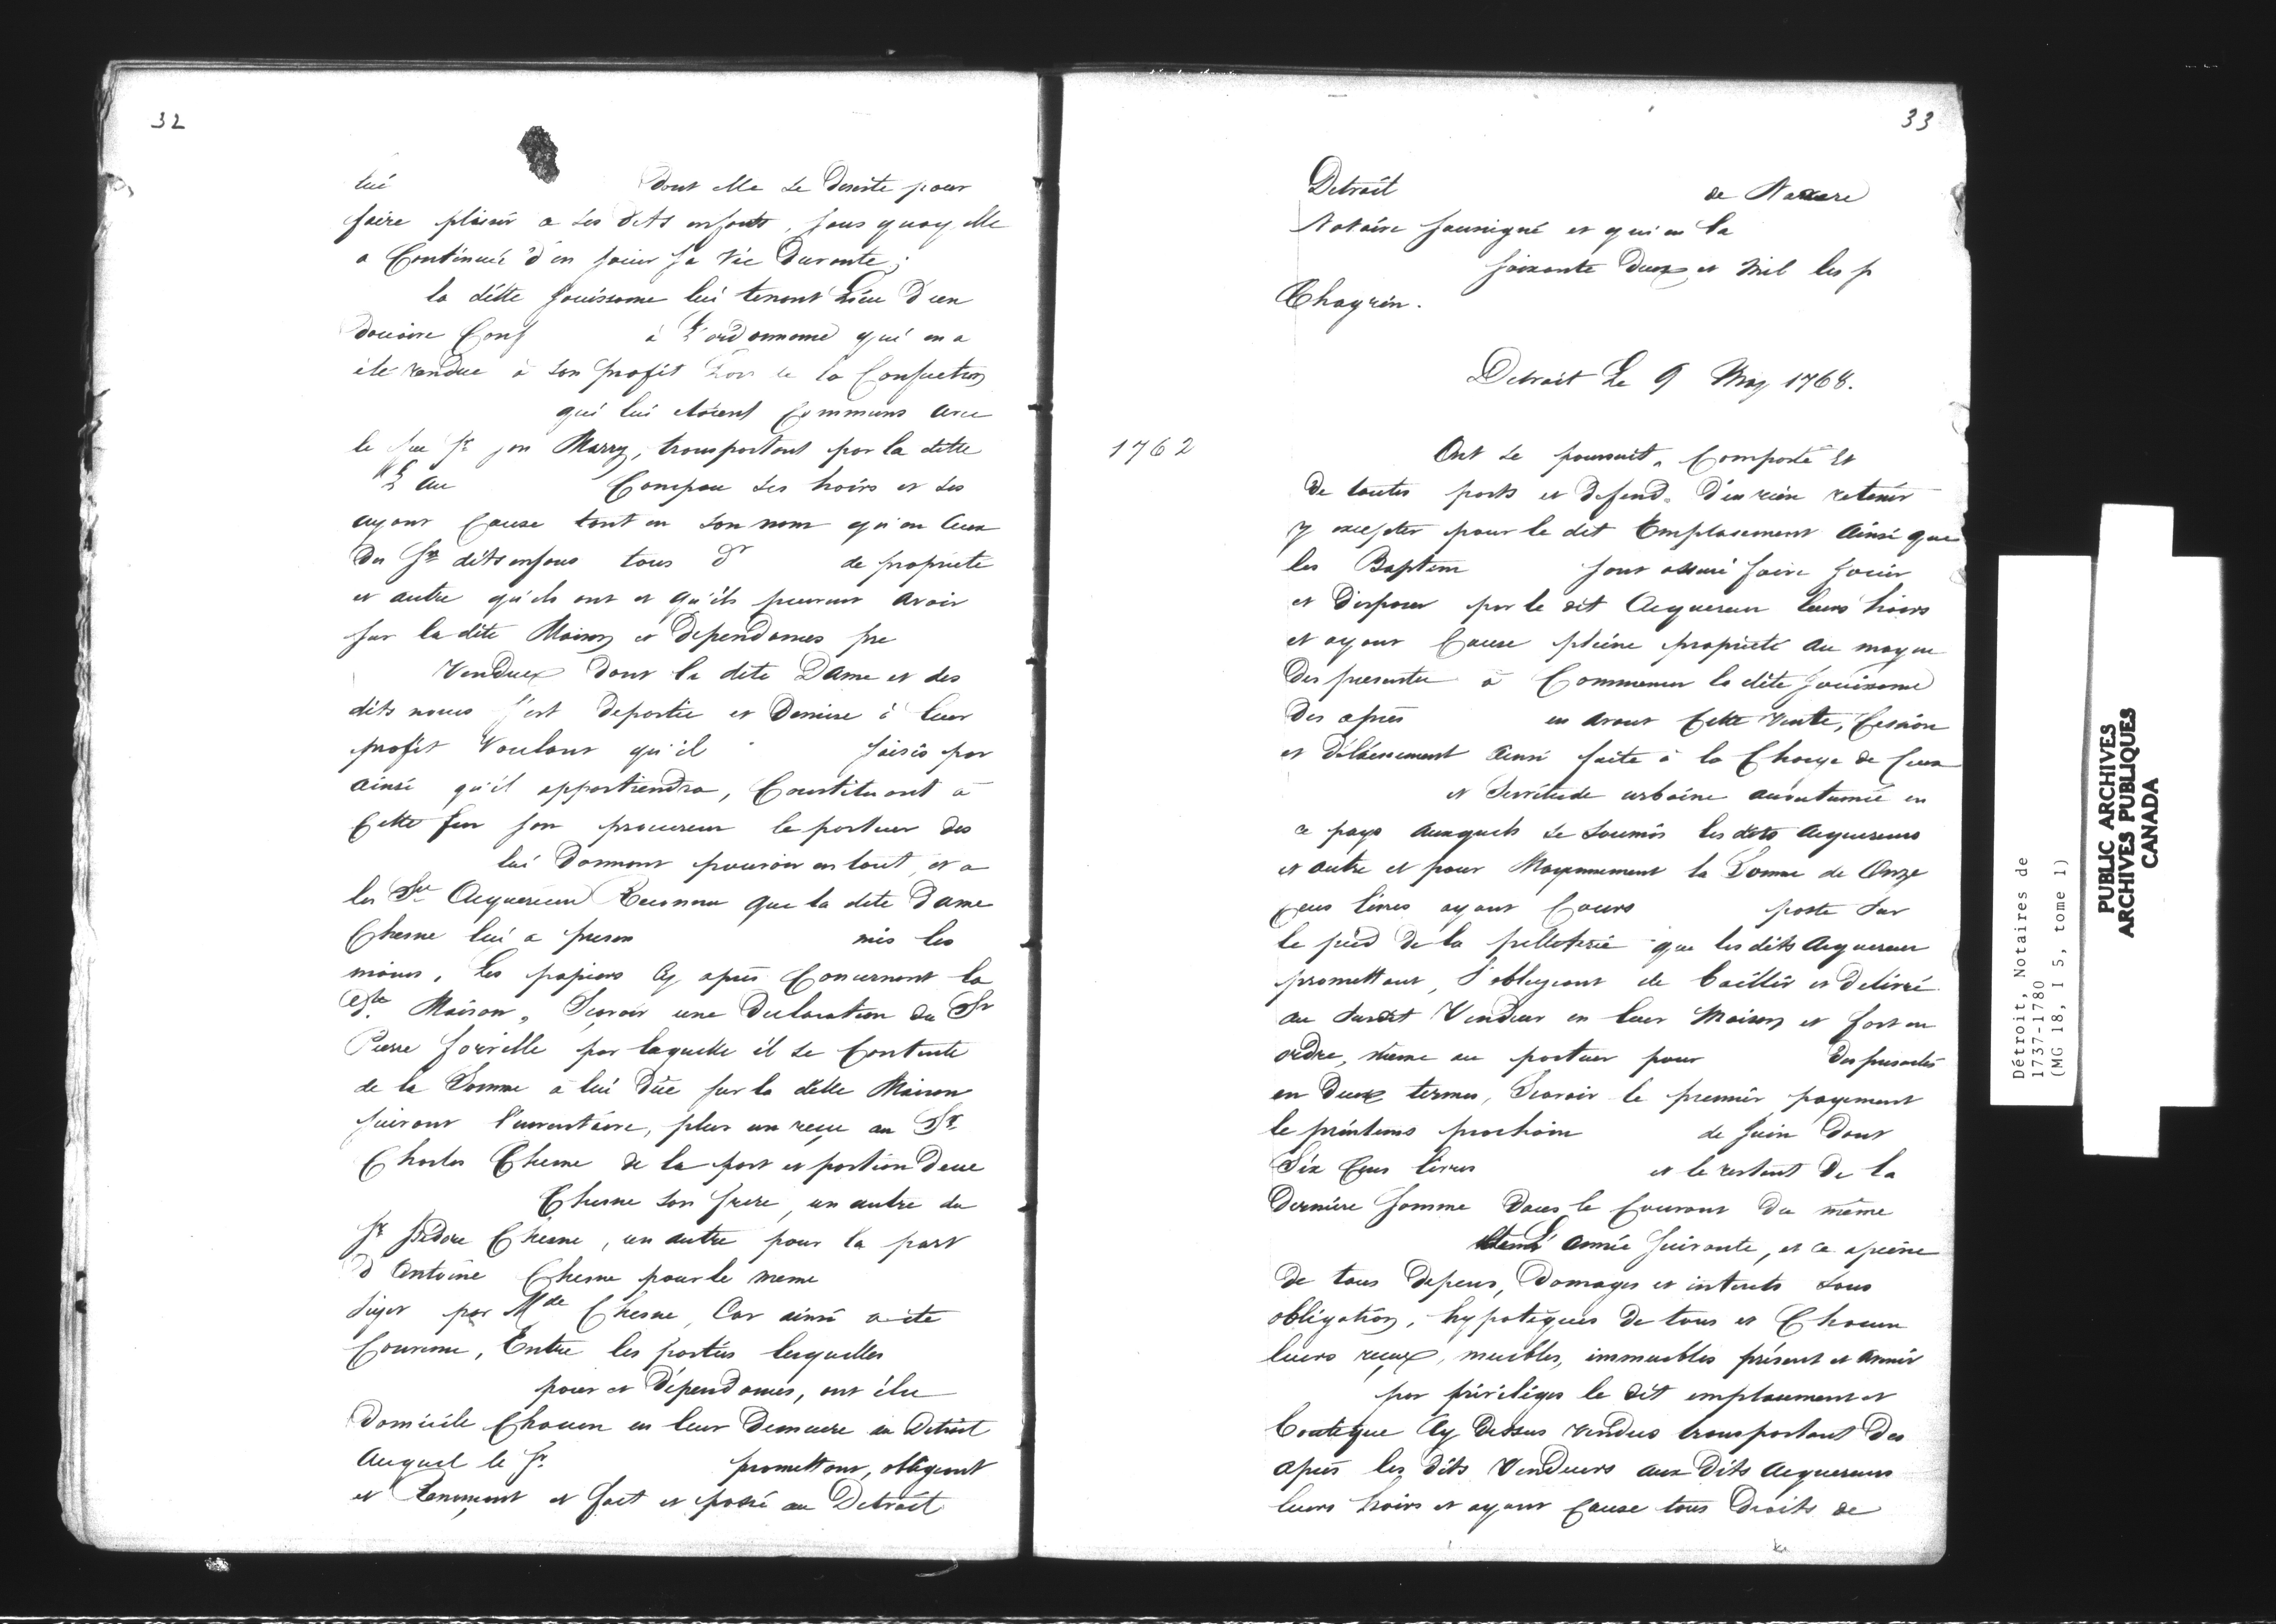 32
lui dont elle se desiste pour
faire plaisir a ses dets enfants, sous quoy elle
a Continué d'en jouir sa vie durante;
la ditte jouissance lui tenant Lieu d'un
douaire Conf à L'ordonnance qui en a
été rendue à son profit Lors de la Confection
qui lui etoient Communs avec
le feu Sr Marry, transportant par la ditte
au Compau ses hoirs et ses
ayant Cause tant en son nom qu'en Ceux
des Srs dits enfans tous dr de propriete
et autre qu'ils ont et qu'ils peuvent avoir
sur la dite Maison et Dependances pre
Vendues dont la dite Dame et des
dits noms s'est departie et Demise à leur
profit Voulant qu'il saisis par
ainsi qu'il appartiendra, Constituant à
Cette fin son procureur le porteur des
lui Donnant pouvoir en tout, et a
les Sr Acquereur Reconnu que la dite Dame
Chesne lui a presen mis les
mains, Les papiers Cy apres Concernant la
dte Maison, Scavoir une Declaration du Sr
Pierre par laquelle il se Contente
de la Somme à lui Dûe sur la ditte Maison
suivant l'inventaire, plus un reçu au Sr
Charles Chesne de la part et portion Deue
Chesne son frere, un autre du
Sr Isidore Chesne, un autre pour la part
d'Antoine Chesne pour le meme
sujet par Mde Chesne, Car ainsi a ete
Convenu, Entre les parties lesquelles
pour et Dépendances, ont élu
Domicile Chacun en leur Demeure au Detroit
Auquel le Sr promettant, obligeant
et Renonçant et fait et passé au Detroit
33
Detroit de Navarre
Notaire soussigné et qui en la
soixante Deux et Mil les p
Chagrin.
Detroit Le 9 May 1768.
1762
Ont se poursuit, Comporte Et
De toutes parts et defend. D'en rien retenir
y excepter pour le dit Emplacement Ainsi que
les Baptem sont assuré faire jouir
et Disposer par le dit Acquereur leurs hoirs
et ayant Cause pleine propriété au moyen
Des presentes à Commencer la dite Jouissance
Des apres en avant Cette Vente, Cession
et Délaissement Ainsi faite à la Charge de Ceux
et Servitude urbaine accoutumée en
ce pays Auxquels se soumis les dits Acquereurs
et autre et pour Moyennement la Somme de Onze
Cens livres ayant Cours poste Sur
le pied de la pelleterie que les dits Acquereur
promettent, S'obligeant de bailler et Delivré
au susdit Vendeur en leur Maison et fort ou
ordre, même au porteur pour des presentes
en Deux termes, Scavoir le premier payement
le printems prochain de Juin Dont
Six Cens livres et le restant De la
Derniere Somme Dans le Courant du même
L'année Suivante, et ce a peine
De tous Depens, Domages et interets sous
obligation, hypoteques De tous et Chacun
leurs, meubles, immeubles présent et avenir
par priviléges le dit emplacement et
boutique Cy Dessus vendus transportant Des
apres les dits Vendeurs aux Dits Acquereurs
leurs hoirs et ayant Cause tous Droits de
Détroit, Notaires de
1737-1780
(MG 18, I 5, tome 1)
PUBLIC ARCHIVES
ARCHIVES PUBLIQUES
CANADA